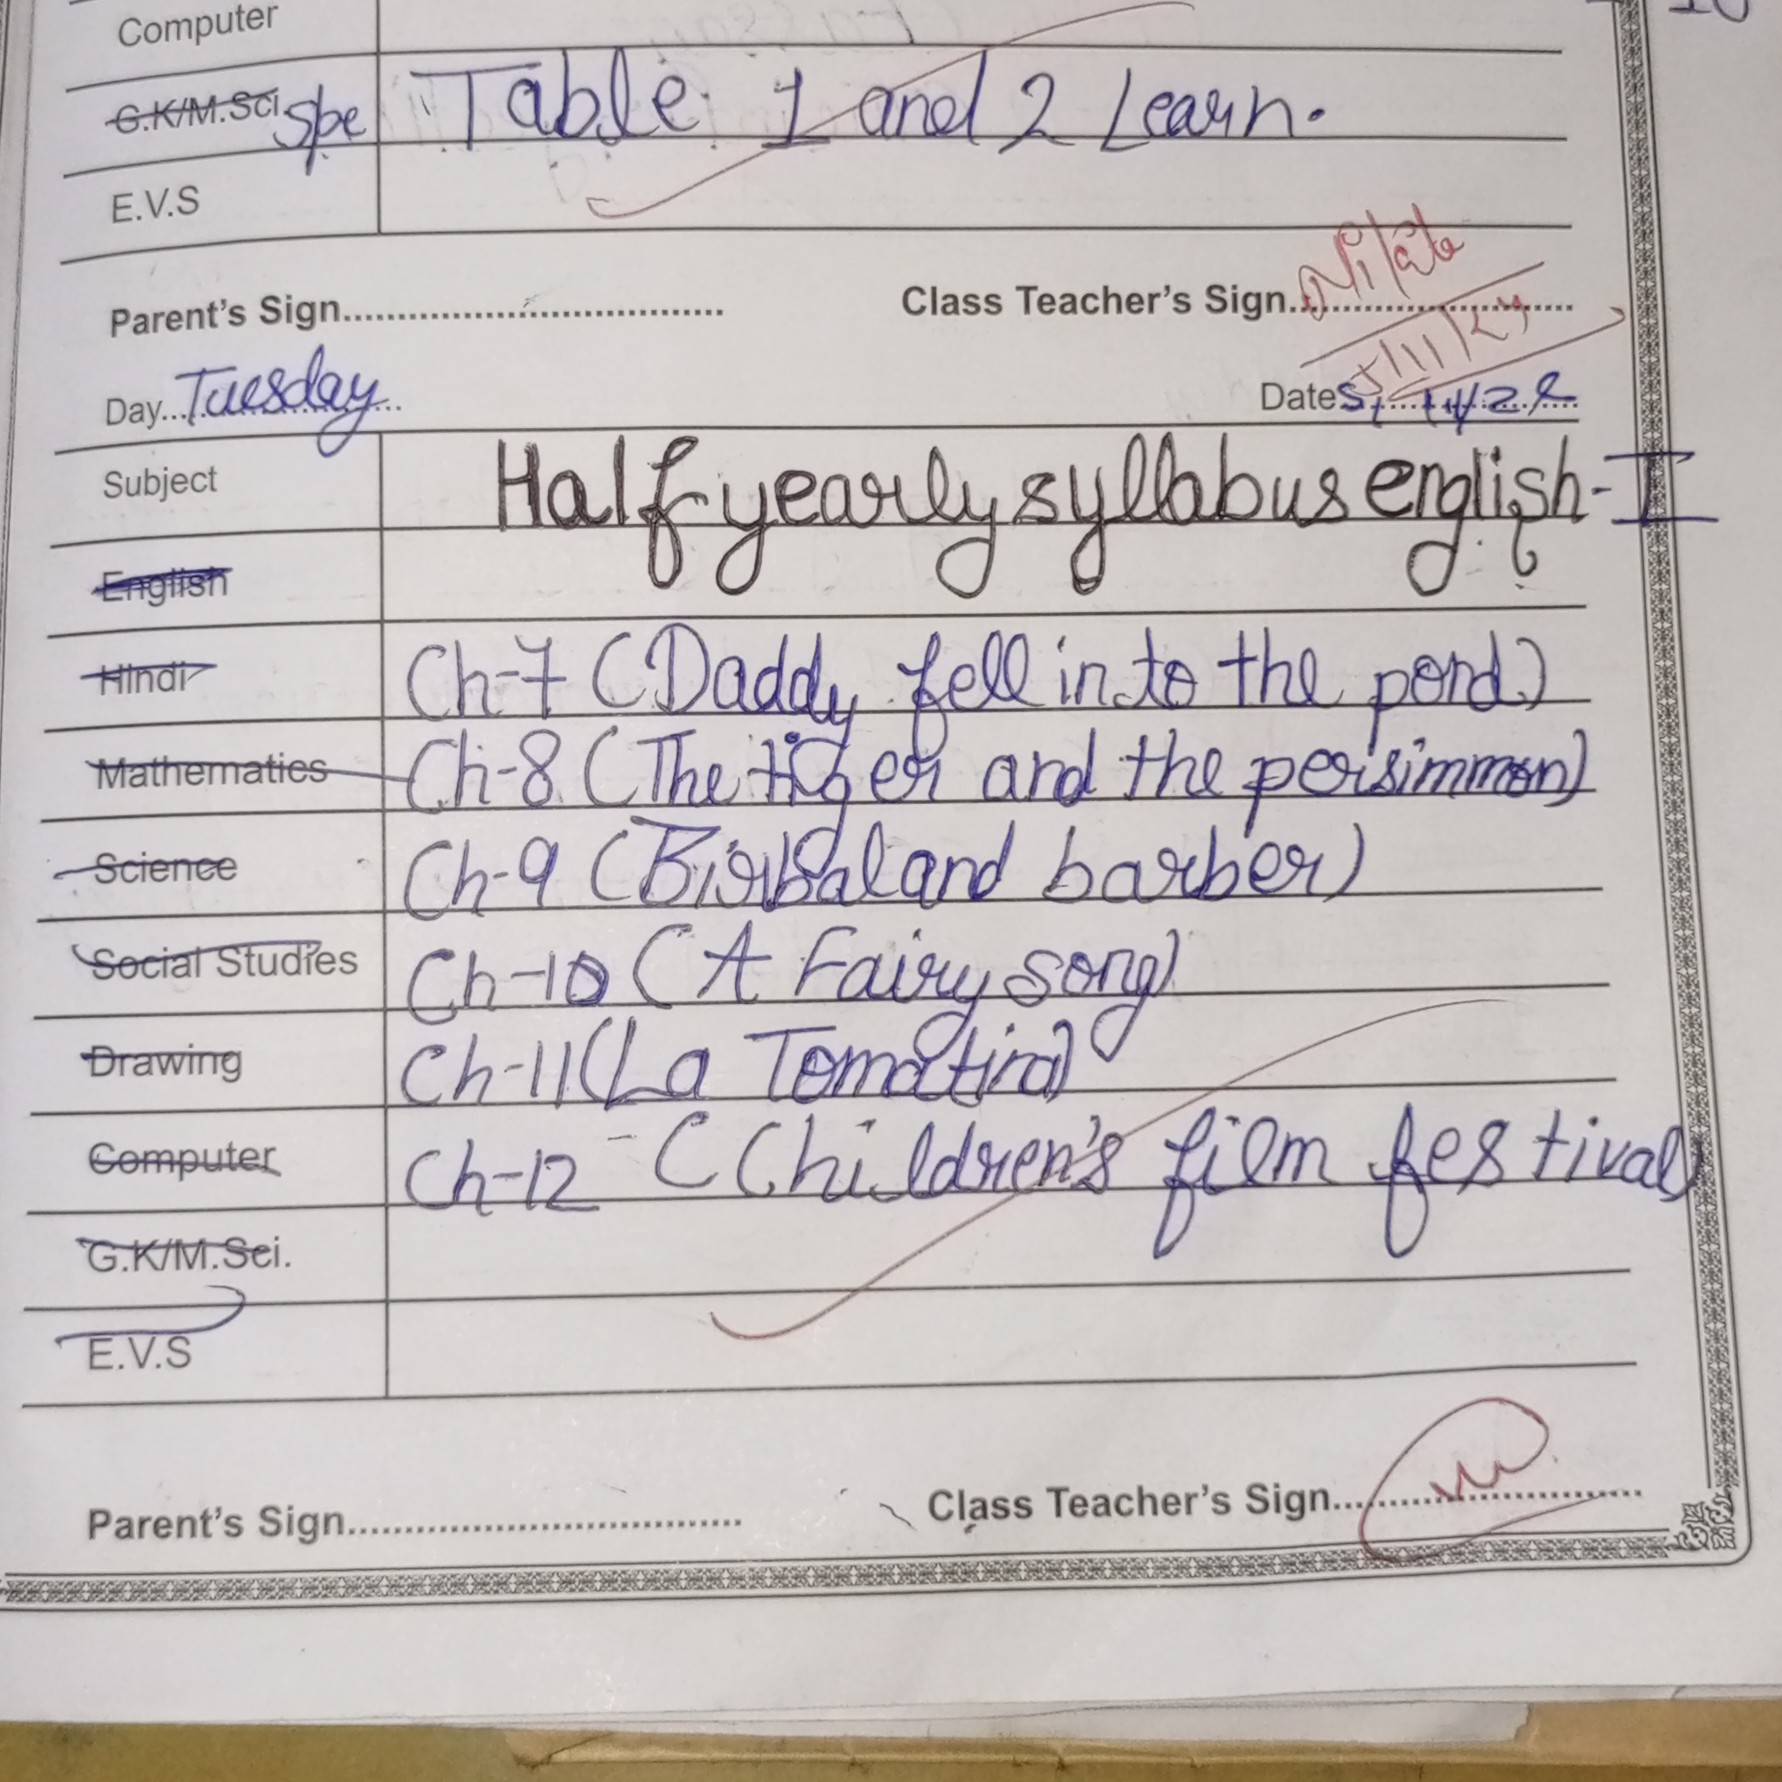 Computer
G.K/M.Sci. spe Table 1 and 2 Learn.
E.V.S
Parent's Sign.................................. Class Teacher's Sign..........................
Day...Tuesday... Date
Subject Half yearly syllabus english-I
English
Hindi Ch-7 (Daddy fell in to the pond)
Mathematics Ch-8 (The tiger and the persimmon)
Science Ch-9 (Birbal and barber)
Social Studies Ch-10 (A Fairy song)
Drawing Ch-11 (La Tomatina)
Computer Ch-12 - (Children's film festival)
G.K/M.Sci.
E.V.S
Parent's Sign.................................. Class Teacher's Sign..........................